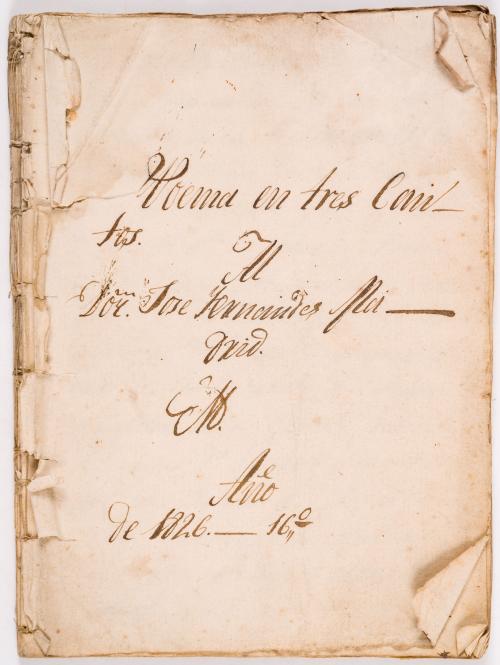 Poema en tres Can-
tos.
Al
Dor. Jose Fernandes Ma-
drid.
M.
Año
de 1826. — 16,,º